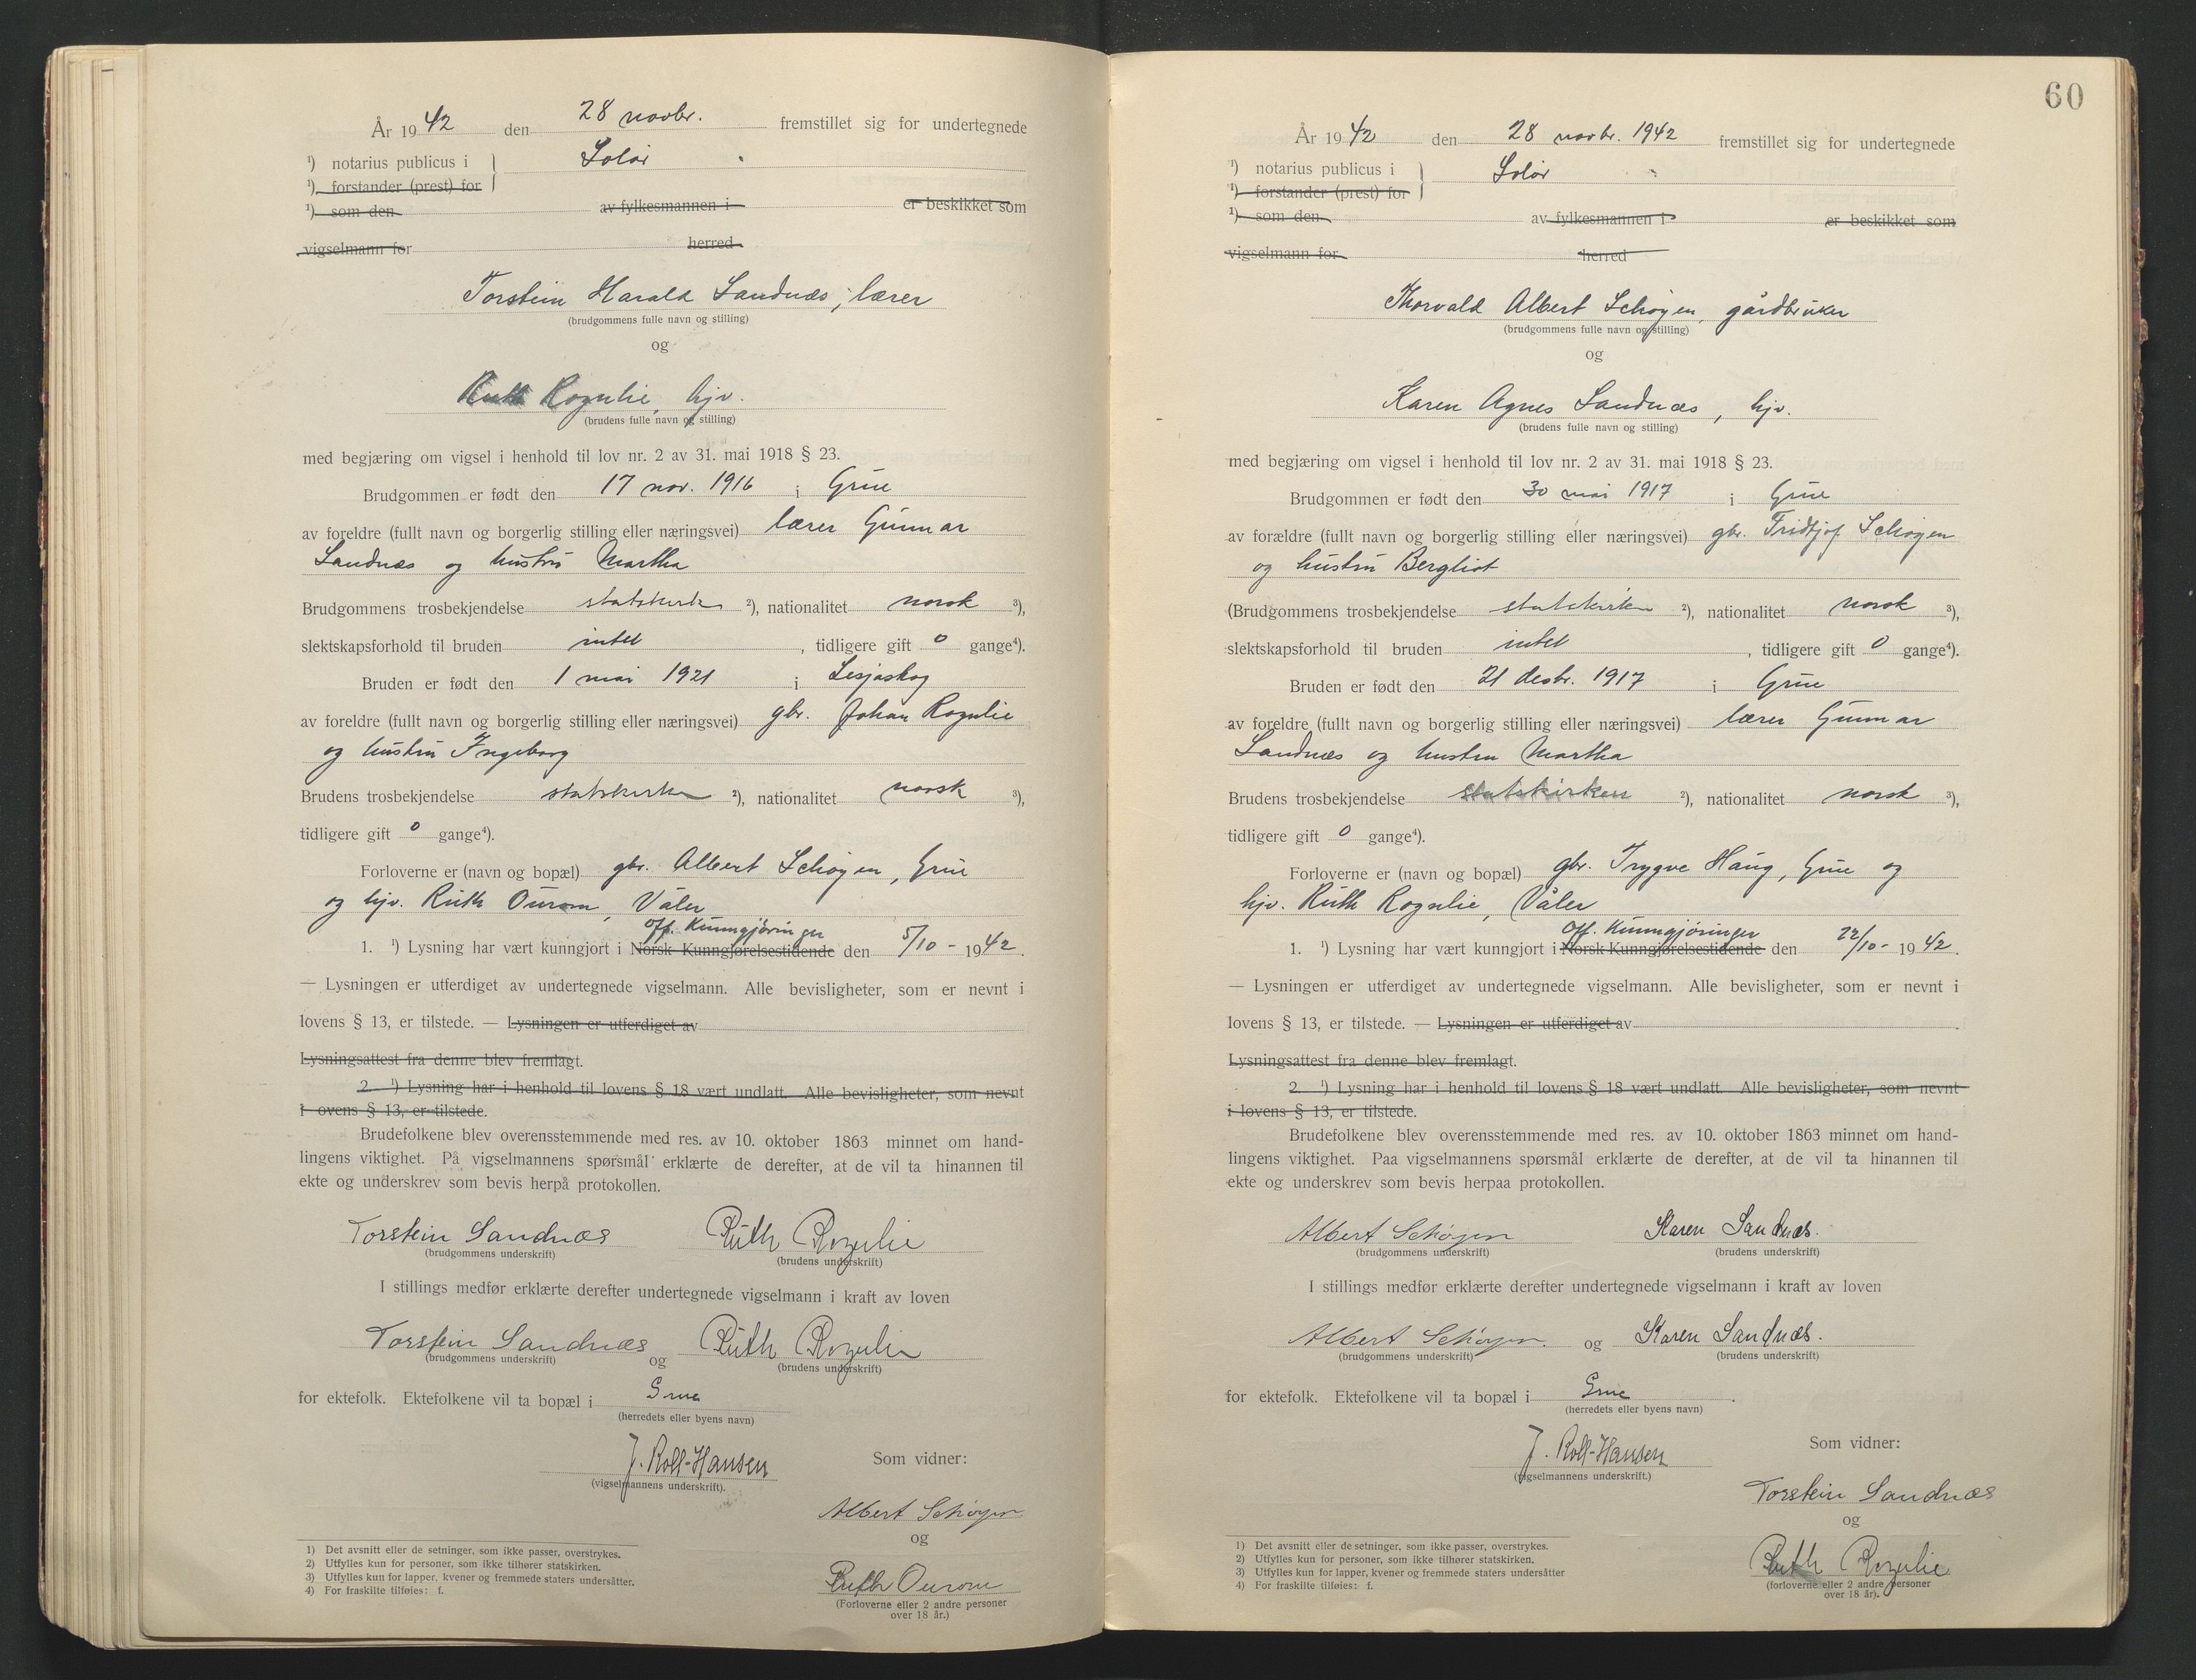 År 19 42 den 28 novbr. fremstillet sig for undertegnede
¹) notarius publicus i } Solør
¹) forstander (prest) for
¹) som den av fylkesmannen i er beskikket som
vigselmann for herred
Torstein Harald Sandnæs, lærer
(brudgommens fulle navn og stilling)
og
Ruth Rognlie, hjv.
(brudens fulle navn og stilling)
med begjæring om vigsel i henhold til lov nr. 2 av 31. mai 1918 § 23.
Brudgommen er født den 17 nov. 1916 i Grue
av foreldre (fullt navn og borgerlig stilling eller næringsvei) lærer Gunnar
Sandnæs og hustru Martha
Brudgommens trosbekjendelse statskirken ²), nationalitet norsk ³),
slektskapsforhold til bruden intet, tidligere gift 0 gange⁴).
Bruden er født den 1 mai 1921 i Lesjaskog
av foreldre (fullt navn og borgerlig stilling eller næringsvei) gbr. Johan Rognlie
og hustru Ingeborg
Brudens trosbekjendelse statskirken ²), nationalitet norsk ³),
tidligere gift 0 gange⁴).
Forloverne er (navn og bopæl) gbr. Albert Schøyen, Grue
og hjv. Ruth Ourom, Våler
off. Kunngjøringer
1. ¹) Lysning har vært kunngjort i Norsk Kunngjørelsestidende den 5/10 - 19 42.
— Lysningen er utferdiget av undertegnede vigselmann. Alle bevisligheter, som er nevnt i
lovens § 13, er tilstede. — Lysningen er utferdiget av
Lysningsattest fra denne blev fremlagt.
2. ¹) Lysning har i henhold til lovens § 18 vært undlatt. Alle bevisligheter, som nevnt
i ovens § 13, er tilstede.
Brudefolkene blev overensstemmende med res. av 10. oktober 1863 minnet om hand-
lingens viktighet. På vigselmannens spørsmål erklærte de derefter, at de vil ta hinannen til
ekte og underskrev som bevis herpå protokollen.
Torstein Sandnæs Ruth Rognlie
(brudgommens underskrift) (brudens underskrift)
I stillings medfør erklærte derefter undertegnede vigselmann i kraft av loven
Torstein Sandnæs og Ruth Rognlie
(brudgommens underskrift) (brudens underskrift)
for ektefolk. Ektefolkene vil ta bopæl i Grue
(herredets eller byens navn)
J. Roll-Hansen
(vigselmannens underskrift).
Som vidner:
Albert Schøyen
og
Ruth Ourom
(Forloverne eller 2 andre personer
over 18 år.)
1) Det avsnitt eller de setninger, som ikke passer, overstrykes.
2) Utfylles kun for personer, som ikke tilhører statskirken.
3) Utfylles kun for lapper, kvener og fremmede staters undersåtter.
4) For fraskilte tilføies: f.
60
År 19 42 den 28 novbr. 1942 fremstillet sig for undertegnede
¹) notarius publicus i } Solør
¹) forstander (prest) for
¹) som den av fylkesmannen i er beskikket som
vigselmann for herred
Thorvald Albert Schøyen, gårdbruker
(brudgommens fulle navn og stilling)
og
Karen Agnes Sandnæs, hjv.
(brudens fulle navn og stilling)
med begjæring om vigsel i henhold til lov nr. 2 av 31. mai 1918 § 23.
Brudgommen er født den 30 mai 1917 i Grue
av forældre (fullt navn og borgerlig stilling eller næringsvei) gbr. Fridtjof Schøyen
og hustru Bergliot
(Brudgommens trosbekjendelse statskirken ²), nationalitet norsk ³),
slektskapsforhold til bruden intet, tidligere gift 0 gange⁴).
Bruden er født den 21 desbr. 1917 i Grue
av foreldre (fullt navn og borgerlig stilling eller næringsvei) lærer Gunnar
Sandnæs og hustru Martha
Brudens trosbekjendelse statskirken ²), nationalitet norsk ³),
tidligere gift 0 gange⁴).
Forloverne er (navn og bopæl) gbr. Trygve Haug, Grue og
hjv. Ruth Rognlie, Våler
Off. Kunngjøringer
1. ¹) Lysning har vært kunngjort i Norsk Kunngjørelsestidende den 22/10 - 19 42.
— Lysningen er utferdiget av undertegnede vigselmann. Alle bevisligheter, som er nevnt i
lovens § 13, er tilstede. — Lysningen er utferdiget av .
Lysningsattest fra denne blev fremlagt.
2. ¹) Lysning har i henhold til lovens § 18 vært undlatt. Alle bevisligheter, som nevnt
i lovens § 13, er tilstede.
Brudefolkene blev overensstemmende med res. av 10. oktober 1863 minnet om hand-
lingens viktighet. Paa vigselmannens spørsmål erklærte de derefter, at de vil ta hinannen til
ekte og underskrev som bevis herpaa protokollen.
Albert Schøyen Karen Sandnæs.
(brudgommens underskrift) (brudens underskrift)
I stillings medfør erklærte derefter undertegnede vigselmann i kraft av loven
Albert Schøyen. og Karen Sandnæs.
(brudgommens underskrift) (brudens underskrift)
for ektefolk. Ektefolkene vil ta bopæl i Grue.
(herredets eller byens navn)
J. Roll-Hansen
(vigselmannens underskrift.)
Som vidner:
Torstein Sandnæs
og
Ruth Rognlie
(forloverne eller 2 andre personer
over 18 år).
1) Det avsnitt eller de setninger, som ikke passer, overstrykes.
2) Utfylles kun for personer, som ikke tilhører statskirken.
3) Utfylles kun for lapper, kvener og fremmede staters undersåtter
4) For fraskilte tilføies: f.